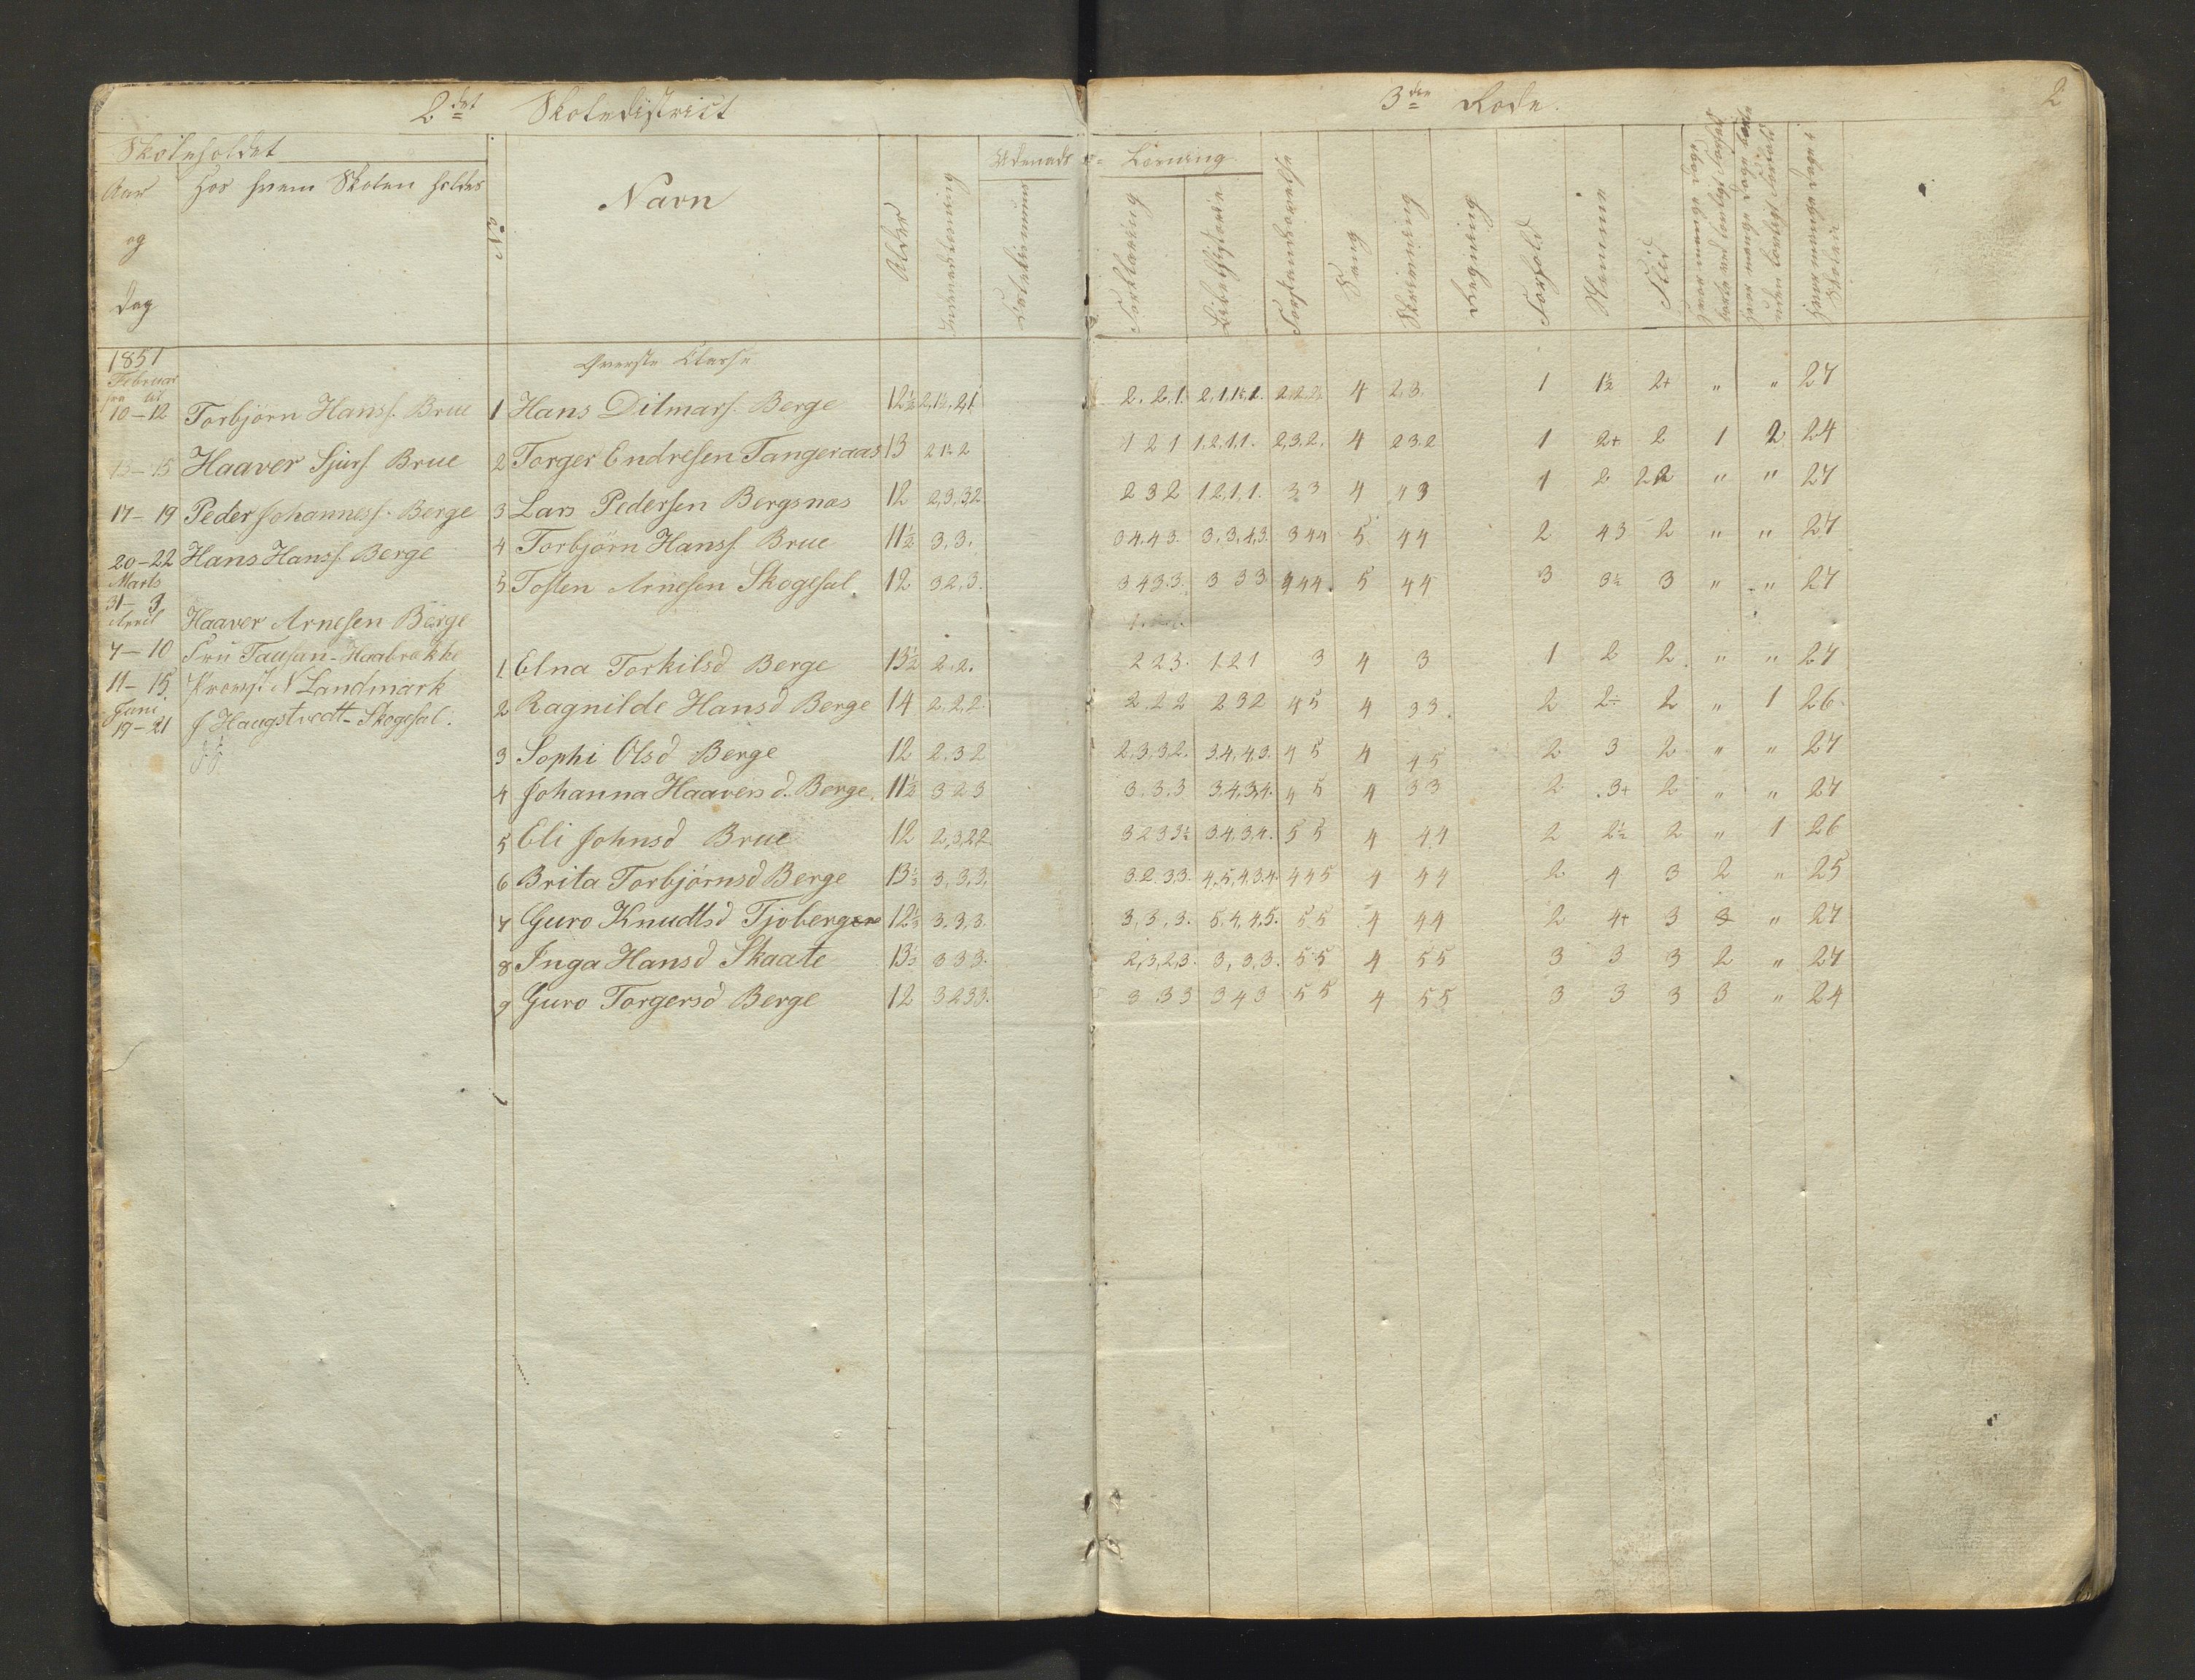 2det Skoledistrict
3die Rode.
2
Skoleholdet
Aar og Dag
Hos hvem Skolen holdes
No
Navn
Alder
Indenadslæsning
Udenads-Læsning
Forklaring
Bibelhistorie
Forstandsøvelse
Sang
Skrivning
Regning
Forhold
Nemme
Flid
1851
Februar
fra til
10-12 Torbjørn Hanss. Brue
13-15 Haaver Sjurs. Brue
17-19 Peder Johanness. Berge
20-22 Hans Hanss. Berge
Marts
31-3 April Haaver Arnesen Berge
7-10 Fru Tausan-Haabrække
11-15 Provst N Landmark
Juni
19-21 J Haugstvedt-Skogesal.
Øverste Classe
1 Hans Ditmars. Berge 12½ 2,1½,2,1 2.2.1. 2,1,1½,1. 2,2,2. 4 2,3. 1 1½ 2+ " " 27
2 Torger Endresen Tangeraas 13 2 1½ 2 1 2 1 1.2,1,1. 2,3.2. 4 2 3 2 1 2+ 2 1 2 24
3 Lars Pedersen Bergsnæs 12 2,3,3,2. 2 3 2 1.2,1,1. 3 3 4 4 3 1 2 2 2 " " 27
4 Torbjørn Hanss. Brue 11½ 3,3. 3 4.4 3. 3,3,4,3. 3 4 4 5. 4 4 2 4 3 2 " " 27
5 Tosten Arnesen Skogesal. 12 3 2,3. 3 4 3.3. 3 3 3 4 4 4. 5 4 4 3 3½ 3 " " 27
1 Elna Torkilsd Berge 13½ 2.2. 2 2 3. 1 2 1 3 4 3 1 2 2. " " 27
2 Ragnilde Hansd Berge 14 2.2,2. 2 2 2 2 3 2 4 5 4 3 3. 2 2÷ 2 " 1 26
3 Sophi Olsd Berge 12 2.3 2 2,3,3,2. 3.4,4,3. 4 5 4 4 5 2 3 2 " " 27
4 Johanna Haaversd. Berge. 11½ 3 2 3 3.3.3 3,4,3,4. 4 5 4 3 3 2 3+ 2 " " 27
5 Eli Johnsd Brue 12 2,3,2 2. 3 2 3 3½ 3.4,3,4. 5 5 4 4 4 2 2½ 2 " 1 26
6 Brita Torbjørnsd Berge 13½ 3,3,3, 3.2.3,3. 4,5,4,3.4. 4 4 5 4 4 4 2 4 3 2 " 25
7 Guro Knudtsd Tjobergene 12½ 3.3,3. 3,3,3. 5,4,4,5. 5 5 4 4 4 2 4+ 3 3 " 27
8 Inga Hansd Skaate 13½ 3 3 3. 2,3,2,3. 3,3,3. 5 5 4 5 5 3 3 3 2 " 27
9 Guro Torgersd Berge 12 3 2 3 3. 3 3 3 3 4 3 5 5 4 5 5 3 3 3 3 " 24